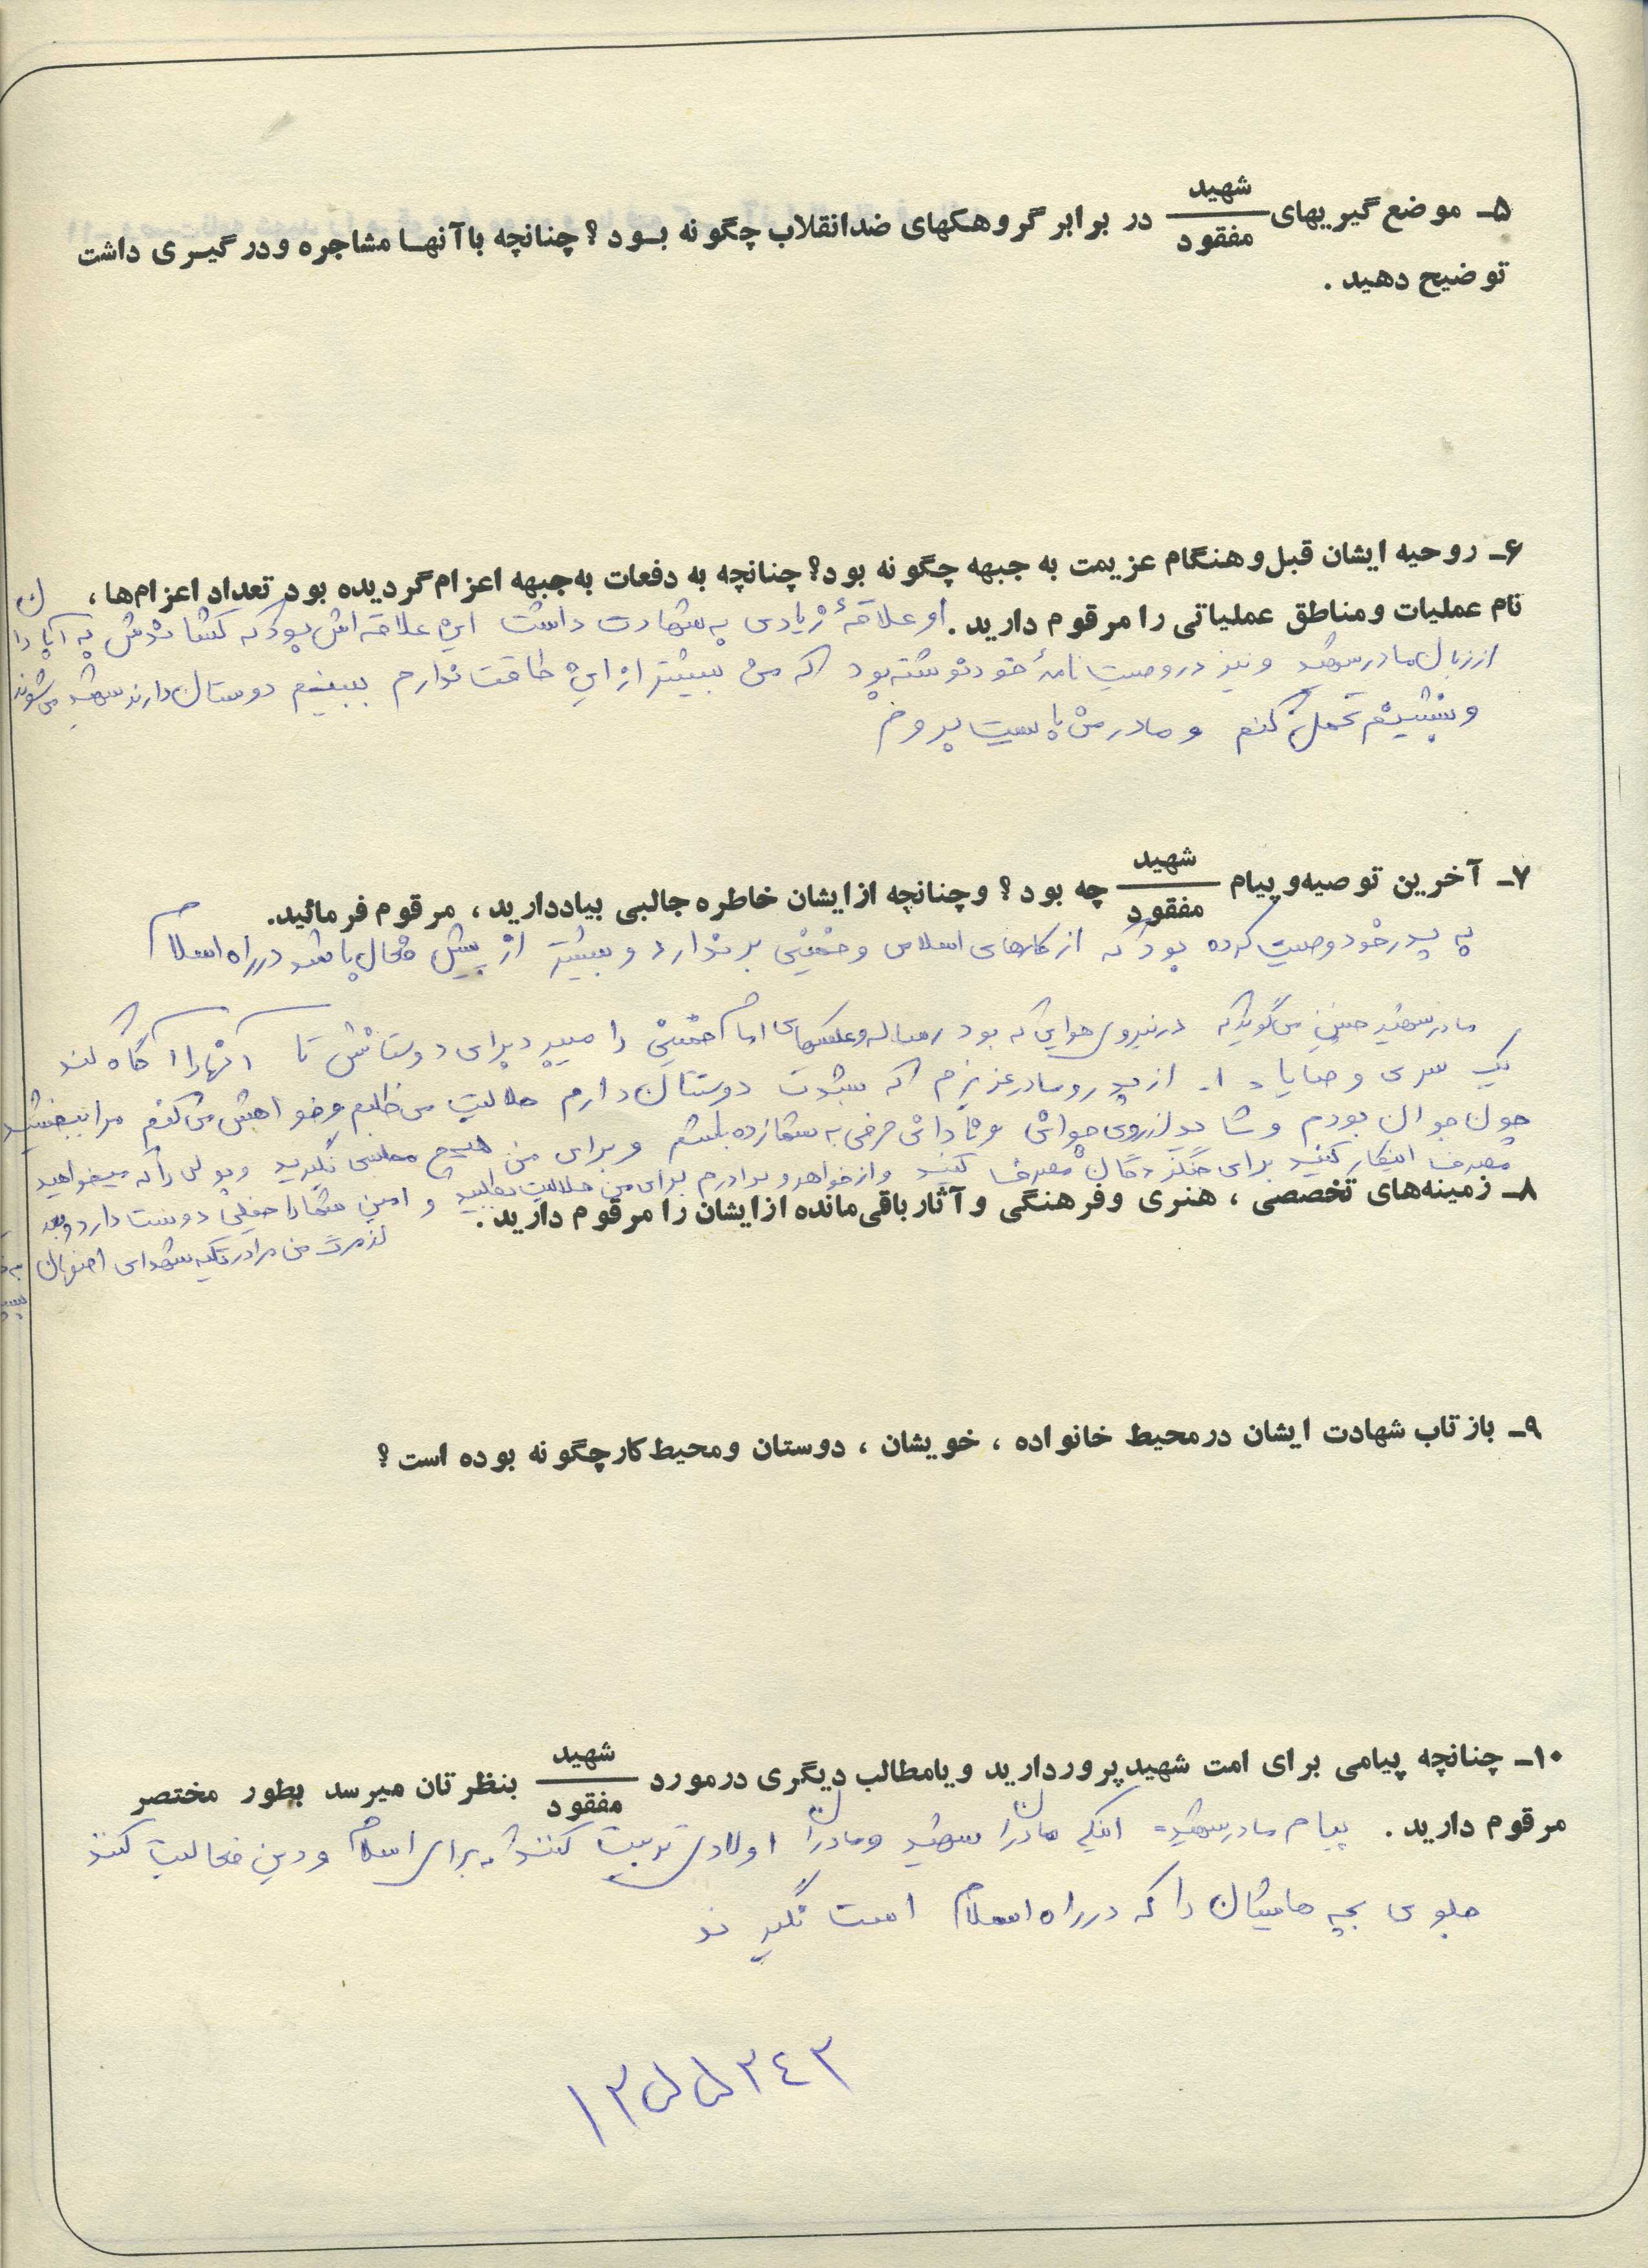 ۵ـ موضع‌گیریهای شهید / مفقود در برابر گروهکهای ضدانقلاب چگونه بود؟ چنانچه باآنها مشاجره ودرگیری داشت
توضیح دهید.
۶ـ روحیه ایشان قبل‌و هنگام عزیمت به جبهه چگونه بود؟ چنانچه به دفعات به‌جبهه اعزام‌گردیده بود تعداد اعزام‌ها،
نام عملیات ومناطق عملیاتی را مرقوم دارید. او علاقهٔ زیادی به شهادت داشت این علاقه‌اش بود که کشاندش به آبادان
از زبان مادر شهید و نیز در وصیت نامهٔ خود نوشته بود که من بیشتر از این طاقت ندارم ببینیم دوستان دارند شهید می‌شوند
و بنشینم تحمل کنم و مادر من بایست بروم
۷ـ آخرین توصیه‌وپیام شهید / مفقود چه بود؟ وچنانچه ازایشان خاطره جالبی بیاددارید، مرقوم فرمائید.
به پدر خود وصیت کرده بود که از کارهای اسلامی و خمینی بر ندارد و بیشتر از پیش فعال باشد در راه اسلام
مادر شهید می‌گوید که در نیروی هوایی که بود رساله و عکسهای امام خمینی را میبرد برای دوستانش تا آنها را آگاه کند
یک سری وصایا ۱ـ از پدر و مادر عزیزم که بشدت دوستان دارم حلالیت می‌طلبم و خواهش می‌کنم مرا ببخشید
چون جوان بودم و شاید از روی جوانی و نادانی حرفی به شما زده باشم و برای من هیچ مجلسی نگیرید و پولی را که میخواهید
مصرف اینکار کنید برای جنگ زدگان مصرف کنید و از خواهر و برادرم برای من حلالیت بطلبید و امین شما را خیلی دوست دارد و بعد
۸ـ زمینه‌های تخصصی، هنری وفرهنگی و آثار باقی‌مانده ازایشان را مرقوم دارید.
از مرگ من مرا در تکیه شهدای اصفهان
۹ـ بازتاب شهادت ایشان درمحیط خانواده، خویشان، دوستان ومحیط کار چگونه بوده است؟
۱۰ـ چنانچه پیامی برای امت شهیدپروردارید ویامطالب دیگری درمورد شهید / مفقود بنظرتان میرسد بطور مختصر
مرقوم دارید. پیام مادر شهید= اینکه مادران شهید و مادران اولادی تربیت کنند که برای اسلام و دین فعالیت کنند
جلوی بچه هایشان را که در راه اسلام است نگیرند